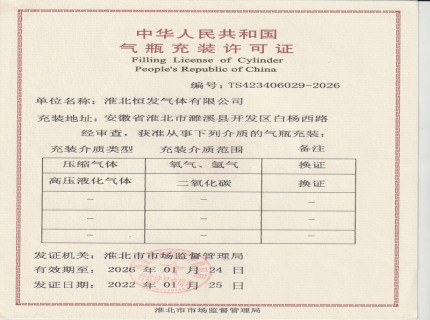 中华人民共和国
气瓶充装许可证
Filling License of Cylinder
People's Republic of China
编号: TS423406029-2026
单位名称: 淮北恒发气体有限公司
充装地址: 安徽省淮北市濉溪县开发区白杨西路
经审查, 获准从事下列介质的气瓶充装:
充装介质类型 充装介质范围 备注
压缩气体 氧气、氩气 换证
高压液化气体 二氧化碳 换证
– – –
– – –
– – –
发证机关: 淮北市市场监督管理局
有效期至: 2026 年 01 月 24 日
发证日期: 2022 年 01 月 25 日
淮北市市场监督管理局